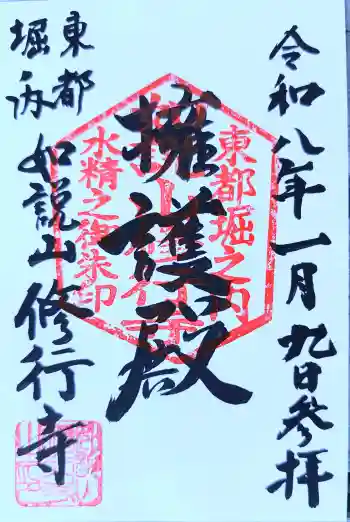 令和八年一月九日参拝
擁護殿
東都
堀内
如説山修行寺
東都堀之内
水精之御朱印